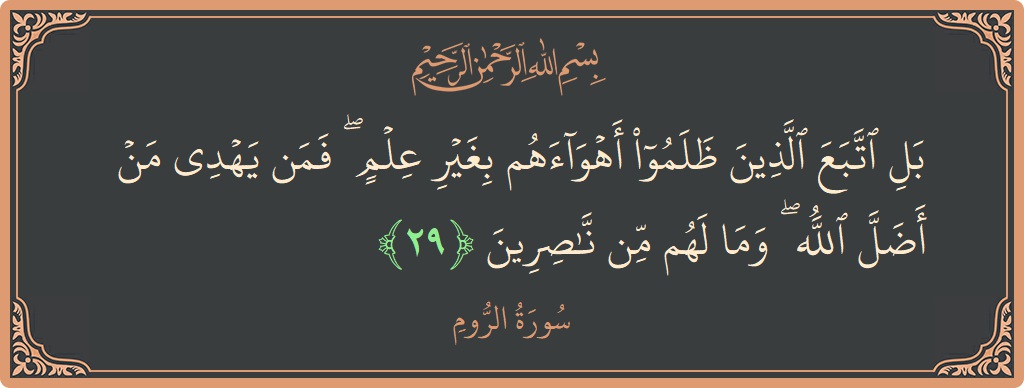 بِسْمِ اللَّهِ الرَّحْمَٰنِ الرَّحِيمِ
بَلِ ٱتَّبَعَ ٱلَّذِينَ ظَلَمُوٓا۟ أَهْوَآءَهُم بِغَيْرِ عِلْمٍ ۖ فَمَن يَهْدِى مَنْ
أَضَلَّ ٱللَّهُ ۖ وَمَا لَهُم مِّن نَّـٰصِرِينَ ﴿٢٩﴾
سُورَةُ الرُّومِ